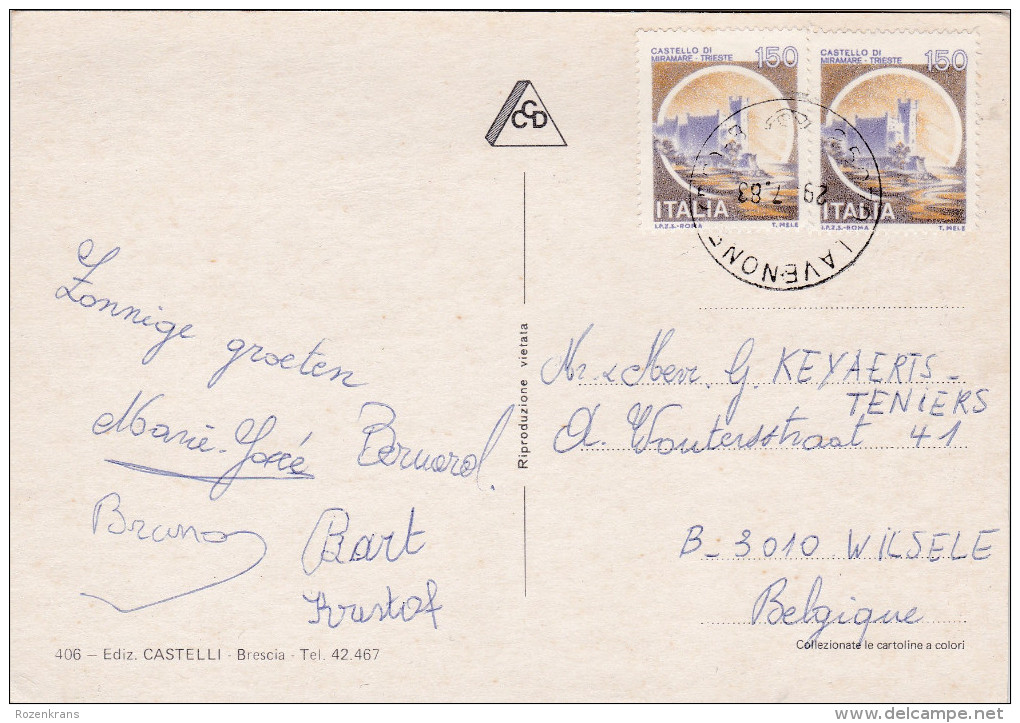 CASTELLO DI
MIRAMARE - TRIESTE 150
ITALIA
I.P.Z.S.-ROMA T. MELE
CASTELLO DI
MIRAMARE - TRIESTE 150
ITALIA
I.P.Z.S.-ROMA T. MELE
29 7.83
LAVENONE
CCD
Zonnige groeten
Marie-Josée Bernard.
Bruno Bart
Kristof
406 – Ediz. CASTELLI - Brescia - Tel. 42.467
Riproduzione vietata
Mr. & Mevr. G. KEYAERTS-
TENIERS
A. Woutersstraat 41
B-3010 WILSELE
Belgique
Collezionate le cartoline a colori
Rozenkrans
delcampe.net